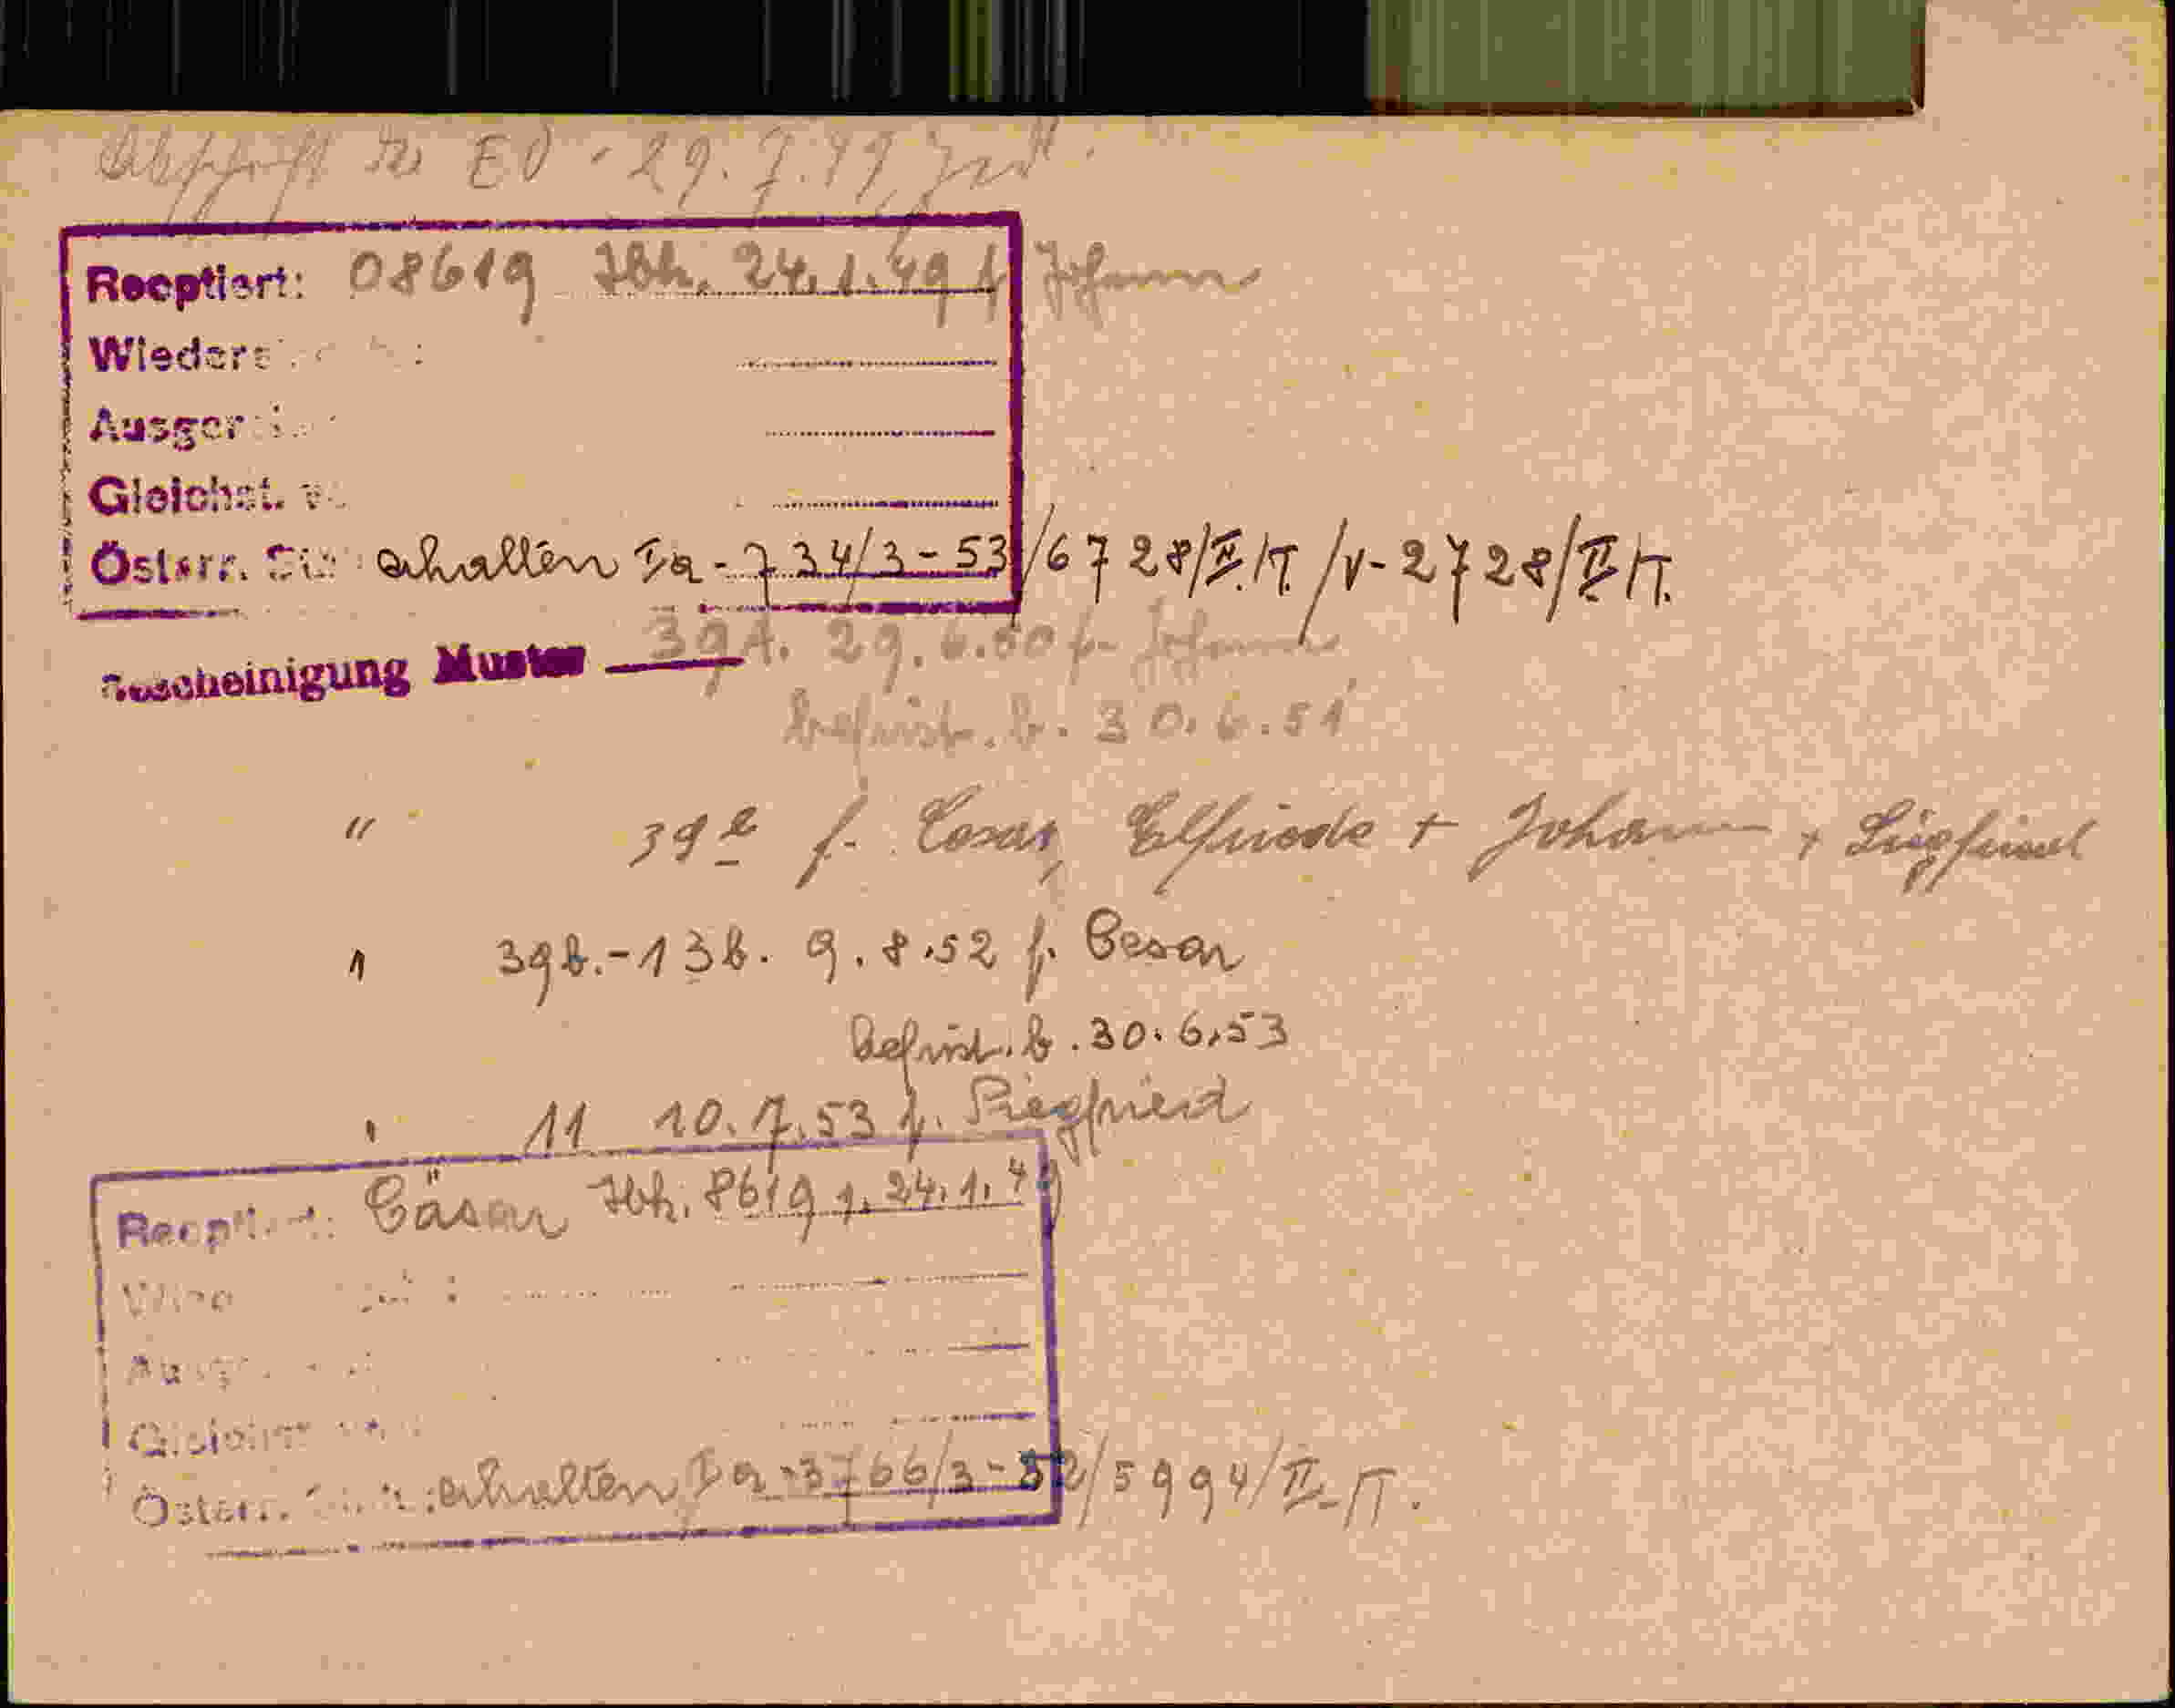 Abschrift ED - 29.7.49
Reoptiert: 08619 Jbk. 24.1.49 f Johann
Wieder
Ausger
Gleichst.
Österr. erhalten Ia - 734/3-53/6728/II/T. /V-2728/II/T.
Bescheinigung Muster 39A. 29.6.50 f. Johann
befrist. b. 30.6.51
" 39b f. Cesar, Elfriede + Johann + Siegfried
" 39b.-13b. 9.8.52 f. Cesar
befrist. b. 30.6.53
" 11 10.7.53 f. Siegfried
Reoptiert: Cäsar Jbk. 8619 v. 24.1.49
Gleichst
Österr. erhalten Ia-3766/3-52/5994/II-T.